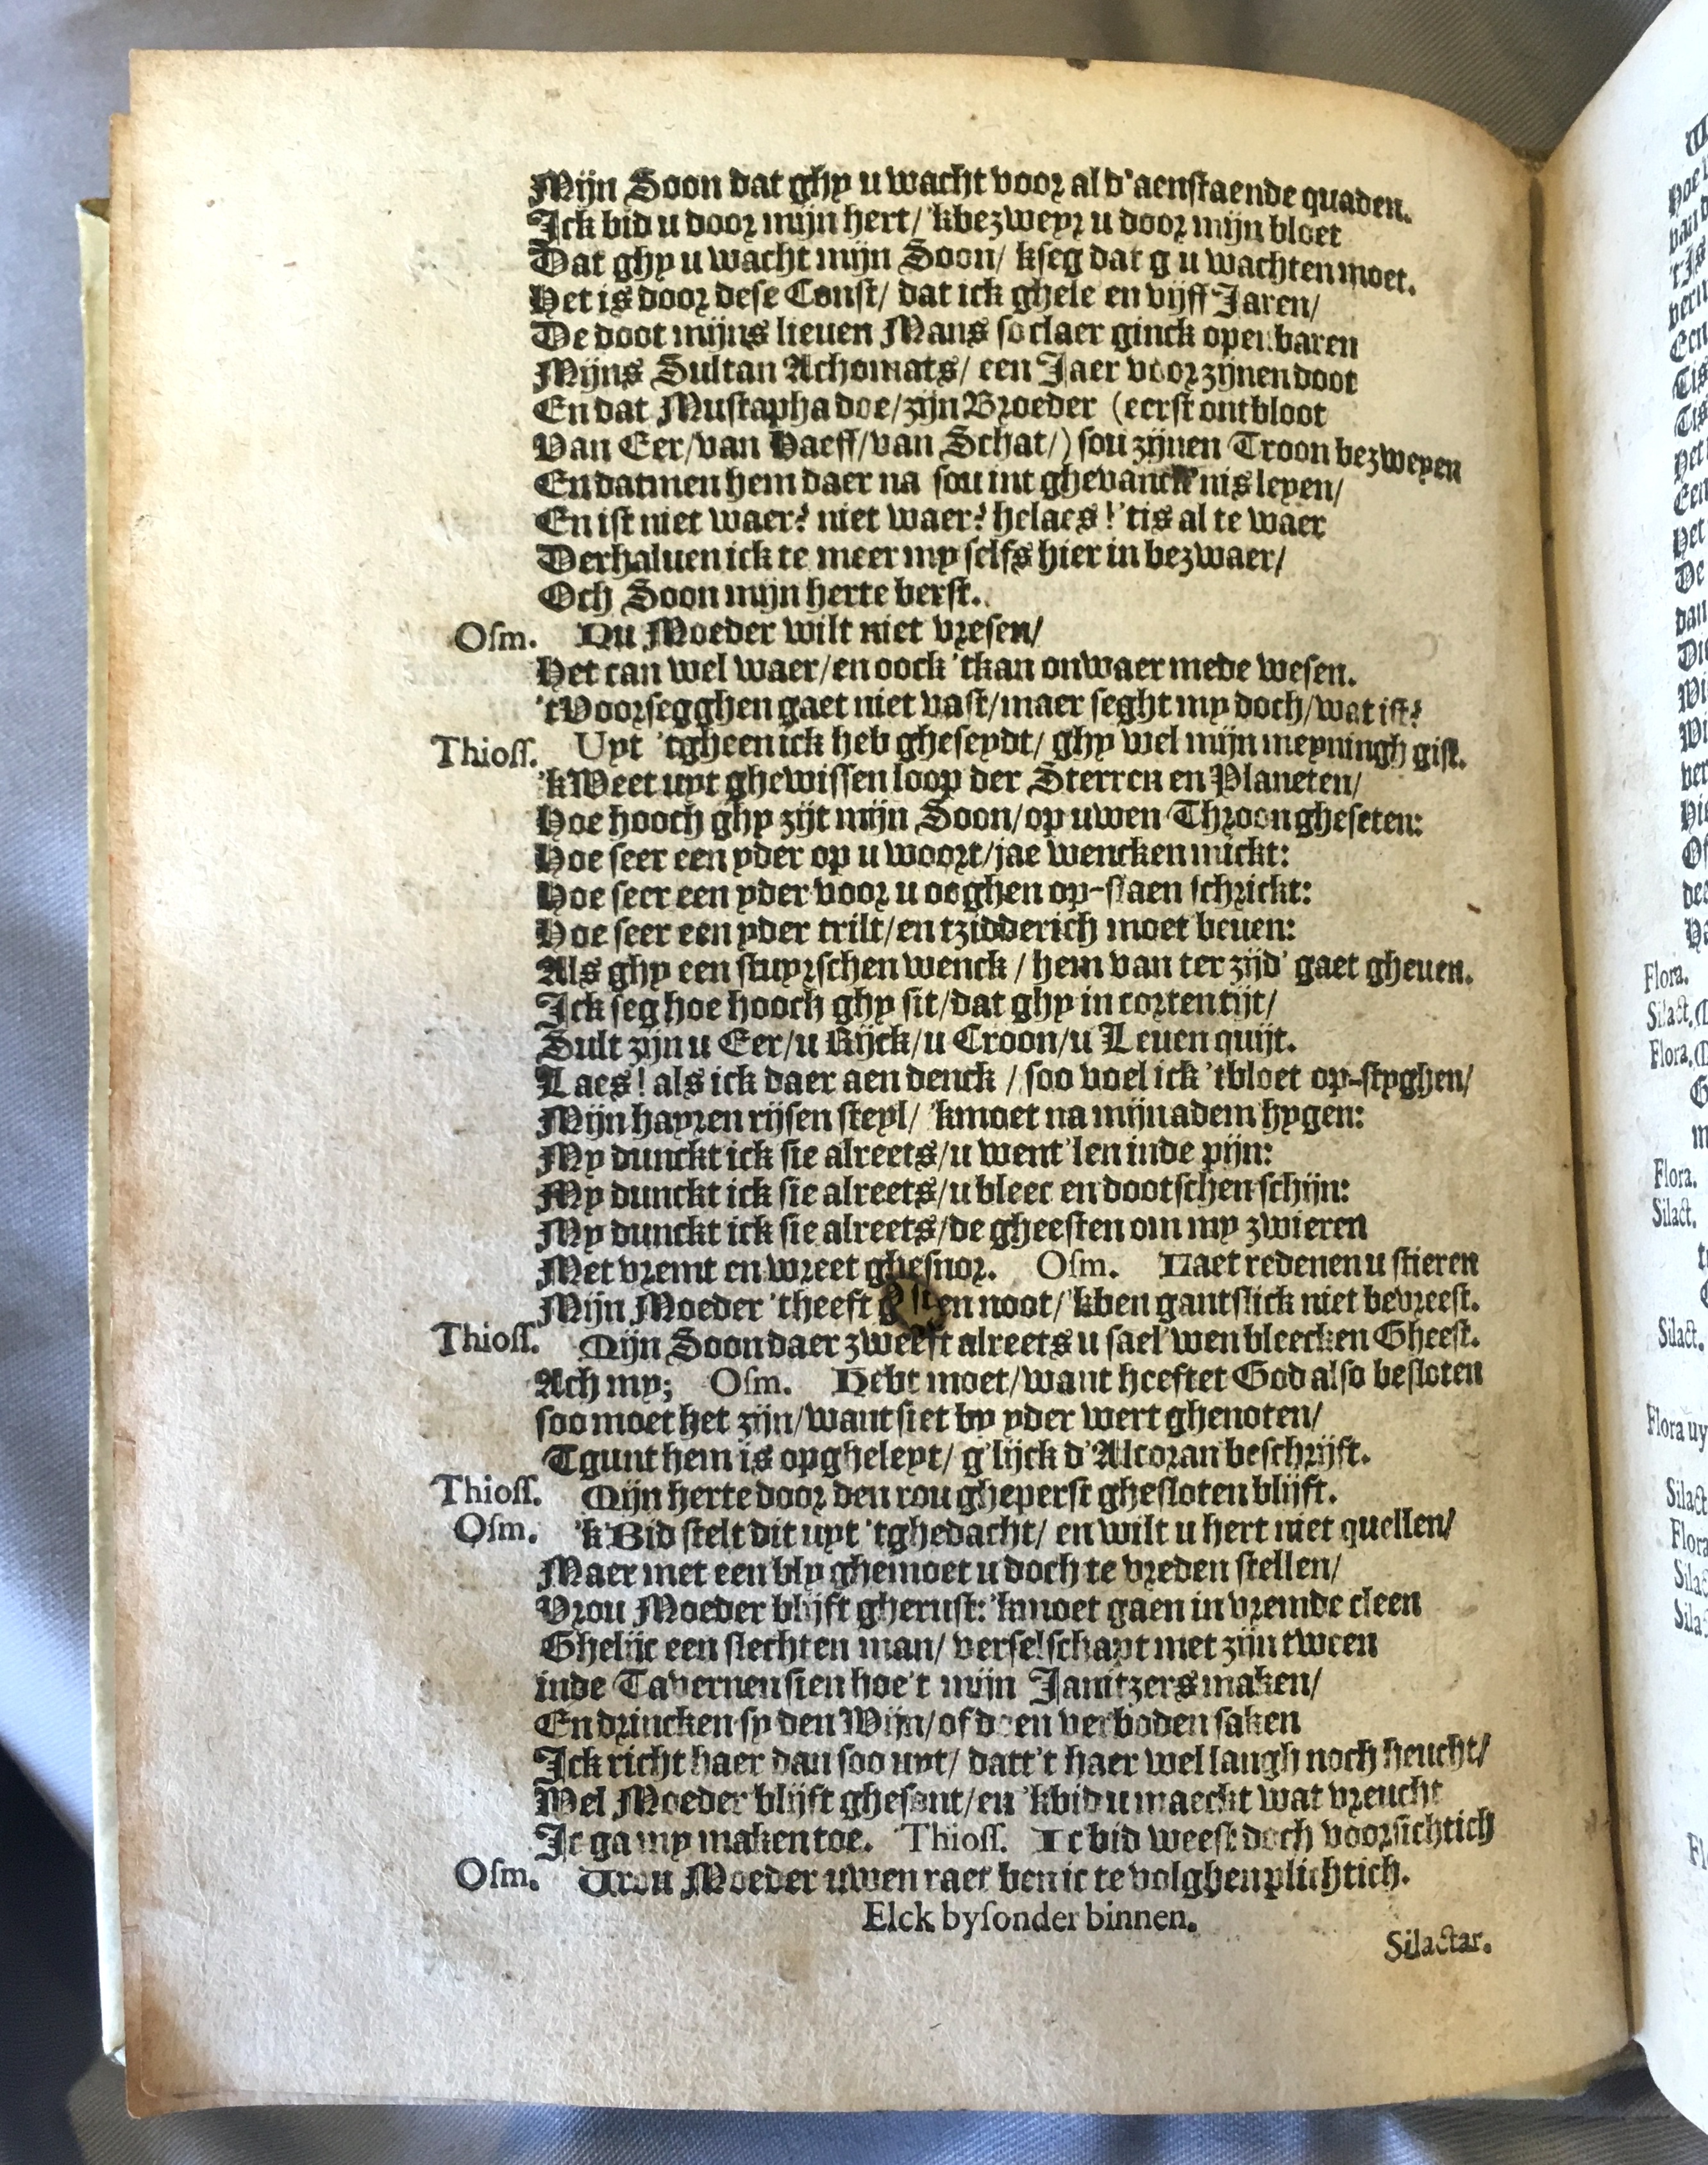 Mijn Soon dat ghy u wacht voor al d'aenstaende quaden.
Ick bid u door mijn hert/ 'kbezweyr u door mijn bloet
Dat ghy u wacht mijn Soon/ kseg dat g u wachten moet.
Het is door dese Const/ dat ick ghele en vijff Jaren/
De doot mijns lieuen Mans so claer ginck openbaren
Mijns Sultan Achomats/ een Jaer voor zijnen doot
En dat Mustapha doe/zijn Broeder (eerst ontbloot
Van Eer/van Haeff/van Schat/) sou zijnen Troon bezweyen
En datmen hem daer na sou int ghevancknis leyen/
En ist niet waer? niet waer? helaes! 'tis al te waer
Derhaluen ick te meer my selfs hier in bezwaer/
Och Soon mijn herte berst.
Osm. Nu Moeder wilt niet vresen/
Het can wel waer/en oock 'tkan onwaer mede wesen.
'tVoorsegghen gaet niet vast/maer seght my doch/wat ist?
Thioss. Uyt 'tgheen ick heb gheseydt/ ghy wel mijn meyningh gist.
'kWeet uyt ghewissen loop der Sterren en Planeten/
Hoe hooch ghy zijt mijn Soon/op uwen Throon gheseten:
Hoe seer een yder op u woort/jae wencken mickt:
Hoe seer een yder voor u ooghen op-slaen schrickt:
Hoe seer een yder trilt/en tzidderich moet beuen:
Als ghy een stuyrschen wenck / hem van ter zijd' gaet gheuen.
Ick seg hoe hooch ghy sit/dat ghy in corten tijt/
Sult zijn u Eer/u Rijck/u Croon/u Leuen quijt.
Laes! als ick daer aen denck / soo voel ick 'tbloet op-styghen/
Mijn hayren rijsen steyl/ 'kmoet na mijn adem hygen:
My dunckt ick sie alreets/u went'len inde pijn:
My dunckt ick sie alreets/u bleec en dootschen schijn:
My dunckt ick sie alreets/de gheesten om my zwieren
Met vremt en wreet ghesnor. Osm. Laet redenen u stieren
Mijn Moeder 'theeft en noot/'kben gantslick niet bevreest.
Thioss. Mijn Soon daer zweeft alreets u sael'wen bleecken Gheest.
Ach my; Osm. Hebt moet/want heeftet God also besloten
soo moet het zijn/want siet by yder wert ghenoten/
Tgunt hem is opgheleyt/ g'lijck d'Alcoran beschrijft.
Thioss. Mijn herte door den rou gheperst ghesloten blijft.
Osm. 'kBid stelt dit uyt 'tghedacht/ en wilt u hert niet quellen/
Maer met een bly ghemoet u doch te vreden stellen/
Vrou Moeder blijft gherust: 'kmoet gaen in vremde cleen
Ghelijc een slechten man/ verselschapt met zijn tween
inde Tavernen sien hoe't mijn Janitzers maken/
En drincken sy den Wijn/of doen verboden saken
Ick richt haer dan soo uyt/ datt't haer wel laugh noch heucht/
Wel Moeder blijft ghesont/en 'kbid u maeckt wat vreucht
Ic ga my maken toe. Thioss. Ic bid weest doch voorsichtich
Osm. Vrou Moeder uwen raet ben ic te volghen plichtich.
Elck bysonder binnen.
Silactar.